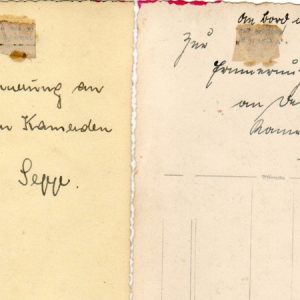 nnerung an
n Kameraden
Sepp.
An Bord
Zur
Erinnerung
an De
Kame